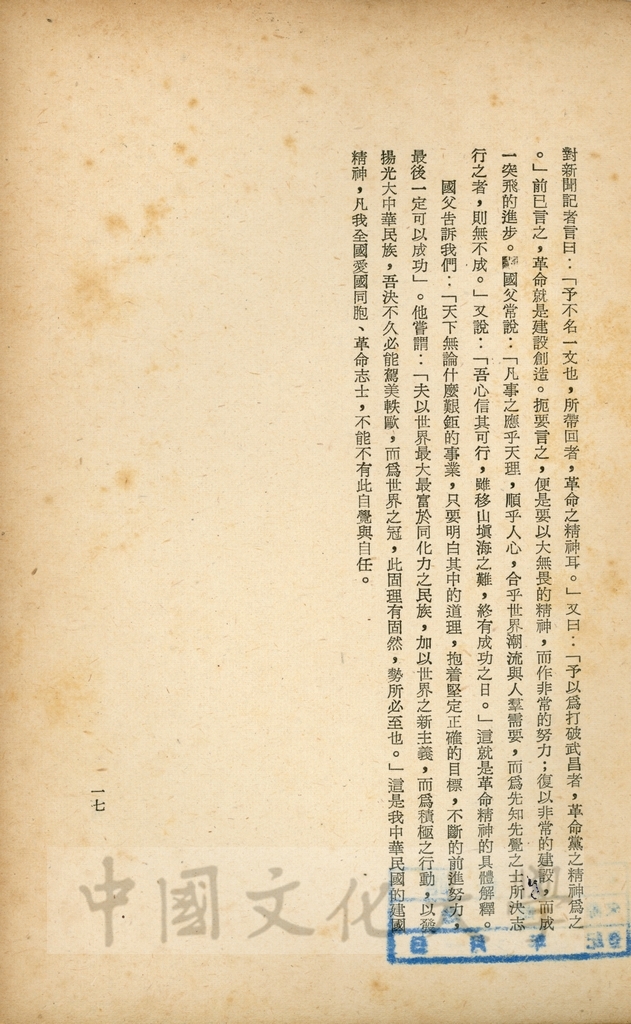 對新聞記者言曰：「予不名一文也，所帶回者，革命之精神耳。」又曰：「予以爲打破武昌者，革命黨之精神爲之
。」前已言之，革命就是建設創造。扼要言之，便是要以大無畏的精神，而作非常的努力；復以非常的建設，而成
一突飛的進步。國父常說：「凡事之應乎天理，順乎人心，合乎世界潮流與人羣需要，而爲先知先覺之士所決志
行之者，則無不成。」又說：「吾心信其可行，雖移山塡海之難，終有成功之日。」這就是革命精神的具體解釋。
國父告訴我們：「天下無論什麼艱鉅的事業，只要明白其中的道理，抱着堅定正確的目標，不斷的前進努力，
最後一定可以成功」。他嘗謂：「夫以世界最大最富於同化力之民族，加以世界之新主義，而爲積極之行動，以發
揚光大中華民族，吾決不久必能駕美軼歐，而爲世界之冠，此固理有固然，勢所必至也。」這是我中華民國的建國
精神，凡我全國愛國同胞、革命志士，不能不有此自覺與自任。
一七
中國文化大學